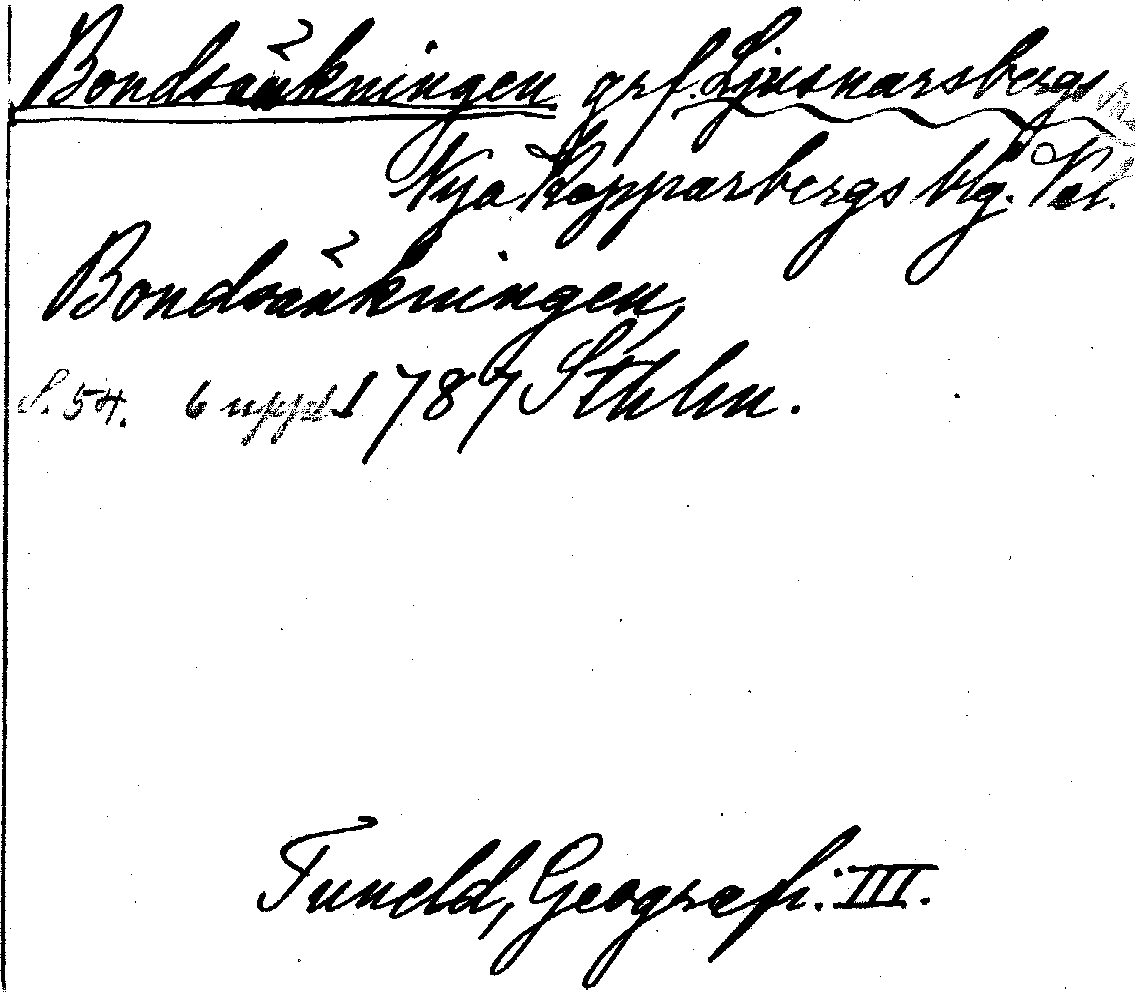 Bondsänkningen grf. Ljusnarsbergs
Nya Kopparbergs blg. Vsl.
Bondsänkningen,
S. 54. 6 uppl 1787 Sthlm.
Tuneld, Geografi. III.